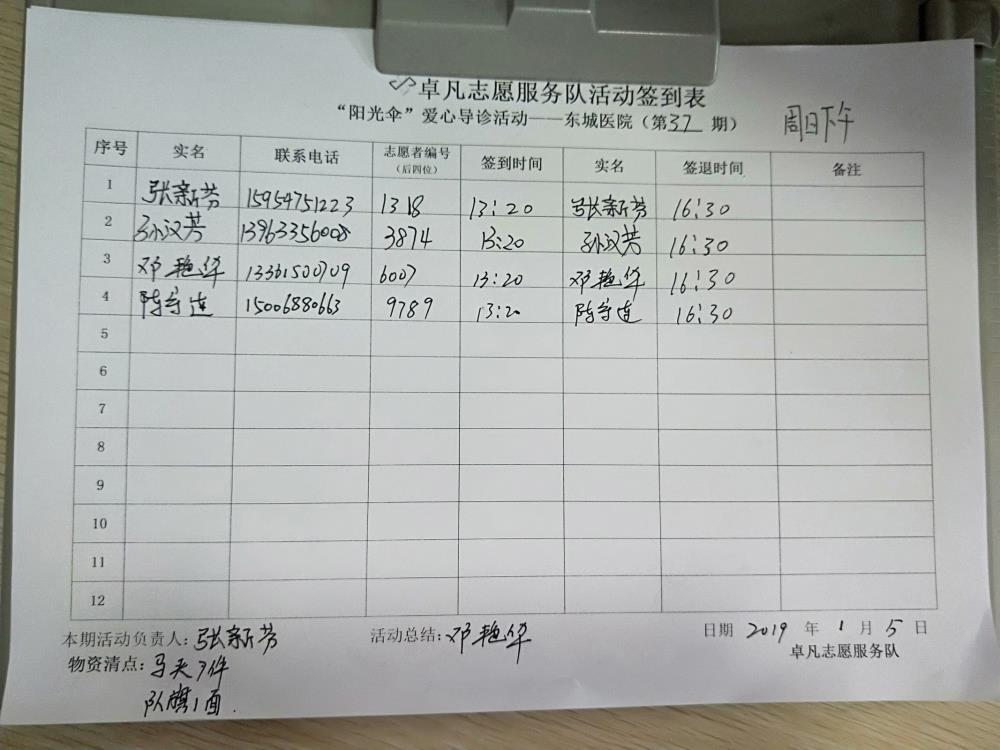 卓凡志愿服务队活动签到表
“阳光伞”爱心导诊活动——东城医院（第37期） 周日下午
序号 实名 联系电话 志愿者编号（后四位） 签到时间 实名 签退时间 备注
1 张新芳 15954751223 1318 13:20 张新芳 16:30
2 孙汉芳 13963356008 3874 13:20 孙汉芳 16:30
3 邓艳华 13361500709 6007 13:20 邓艳华 16:30
4 陈守连 15006880663 9789 13:20 陈守连 16:30
5
6
7
8
9
10
11
12
本期活动负责人：张新芳 活动总结：邓艳华 日期 2019 年 1 月 5 日
物资清点：马夹7件 卓凡志愿服务队
队旗1面.